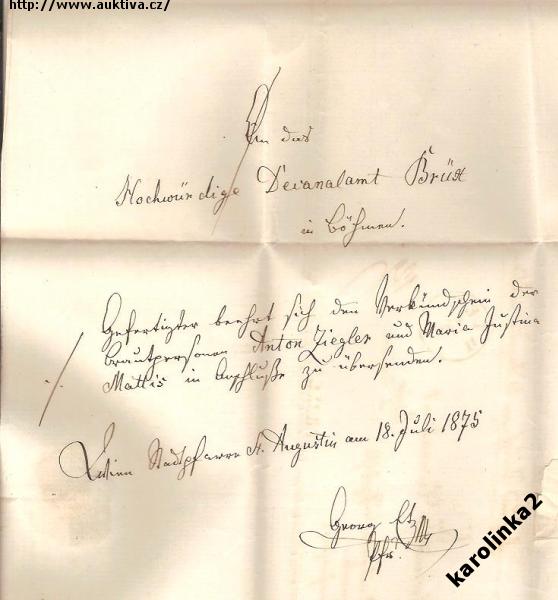 http://www.auktiva.cz/
An das
Hochwürdige Decanalamt Brüx
in Böhmen.
Gefertigter beehrt sich den Verkündschein der
Brautpersonen Anton Ziegler und Maria Justina
Mattis in Anschluße zu übersenden.
Wien Stadtpfarre St. Augustin am 18. Juli 1875
Georg
Pfr.
karolinka2